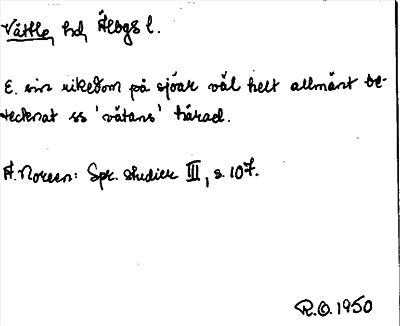 Vättle, hd, Älvsgs l.
E. sin rikedom på sjöar väl helt allmänt be-
tecknat ss 'vätans' härad.
A. Noreen: Spr. studier III, s. 107.
R.O. 1950